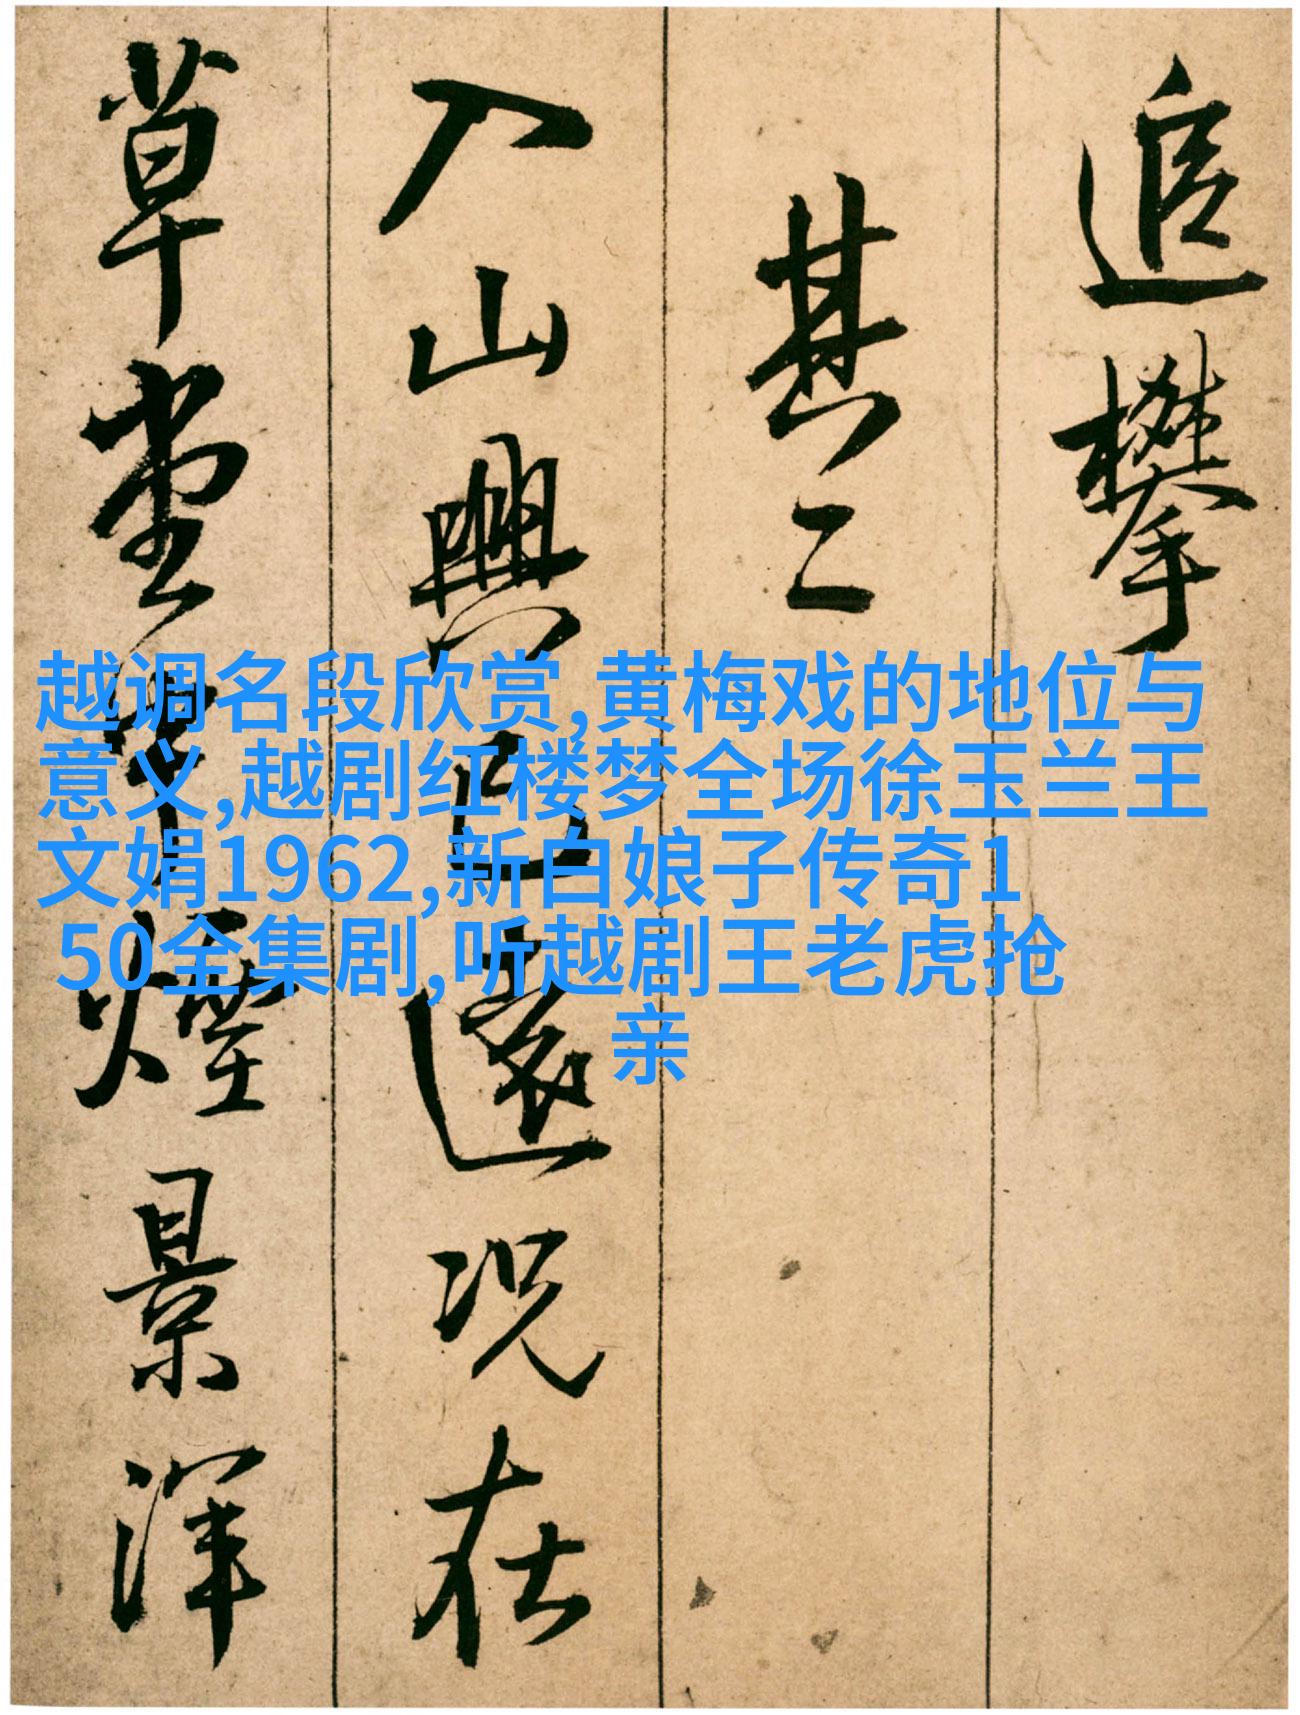 追攀
其二
入山興已遠況在
草堂煙景渾
越调名段欣赏,黄梅戏的地位与
意义,越剧红楼梦全场徐玉兰王
文娟1962,新白娘子传奇1
50全集剧,听越剧王老虎抢
亲